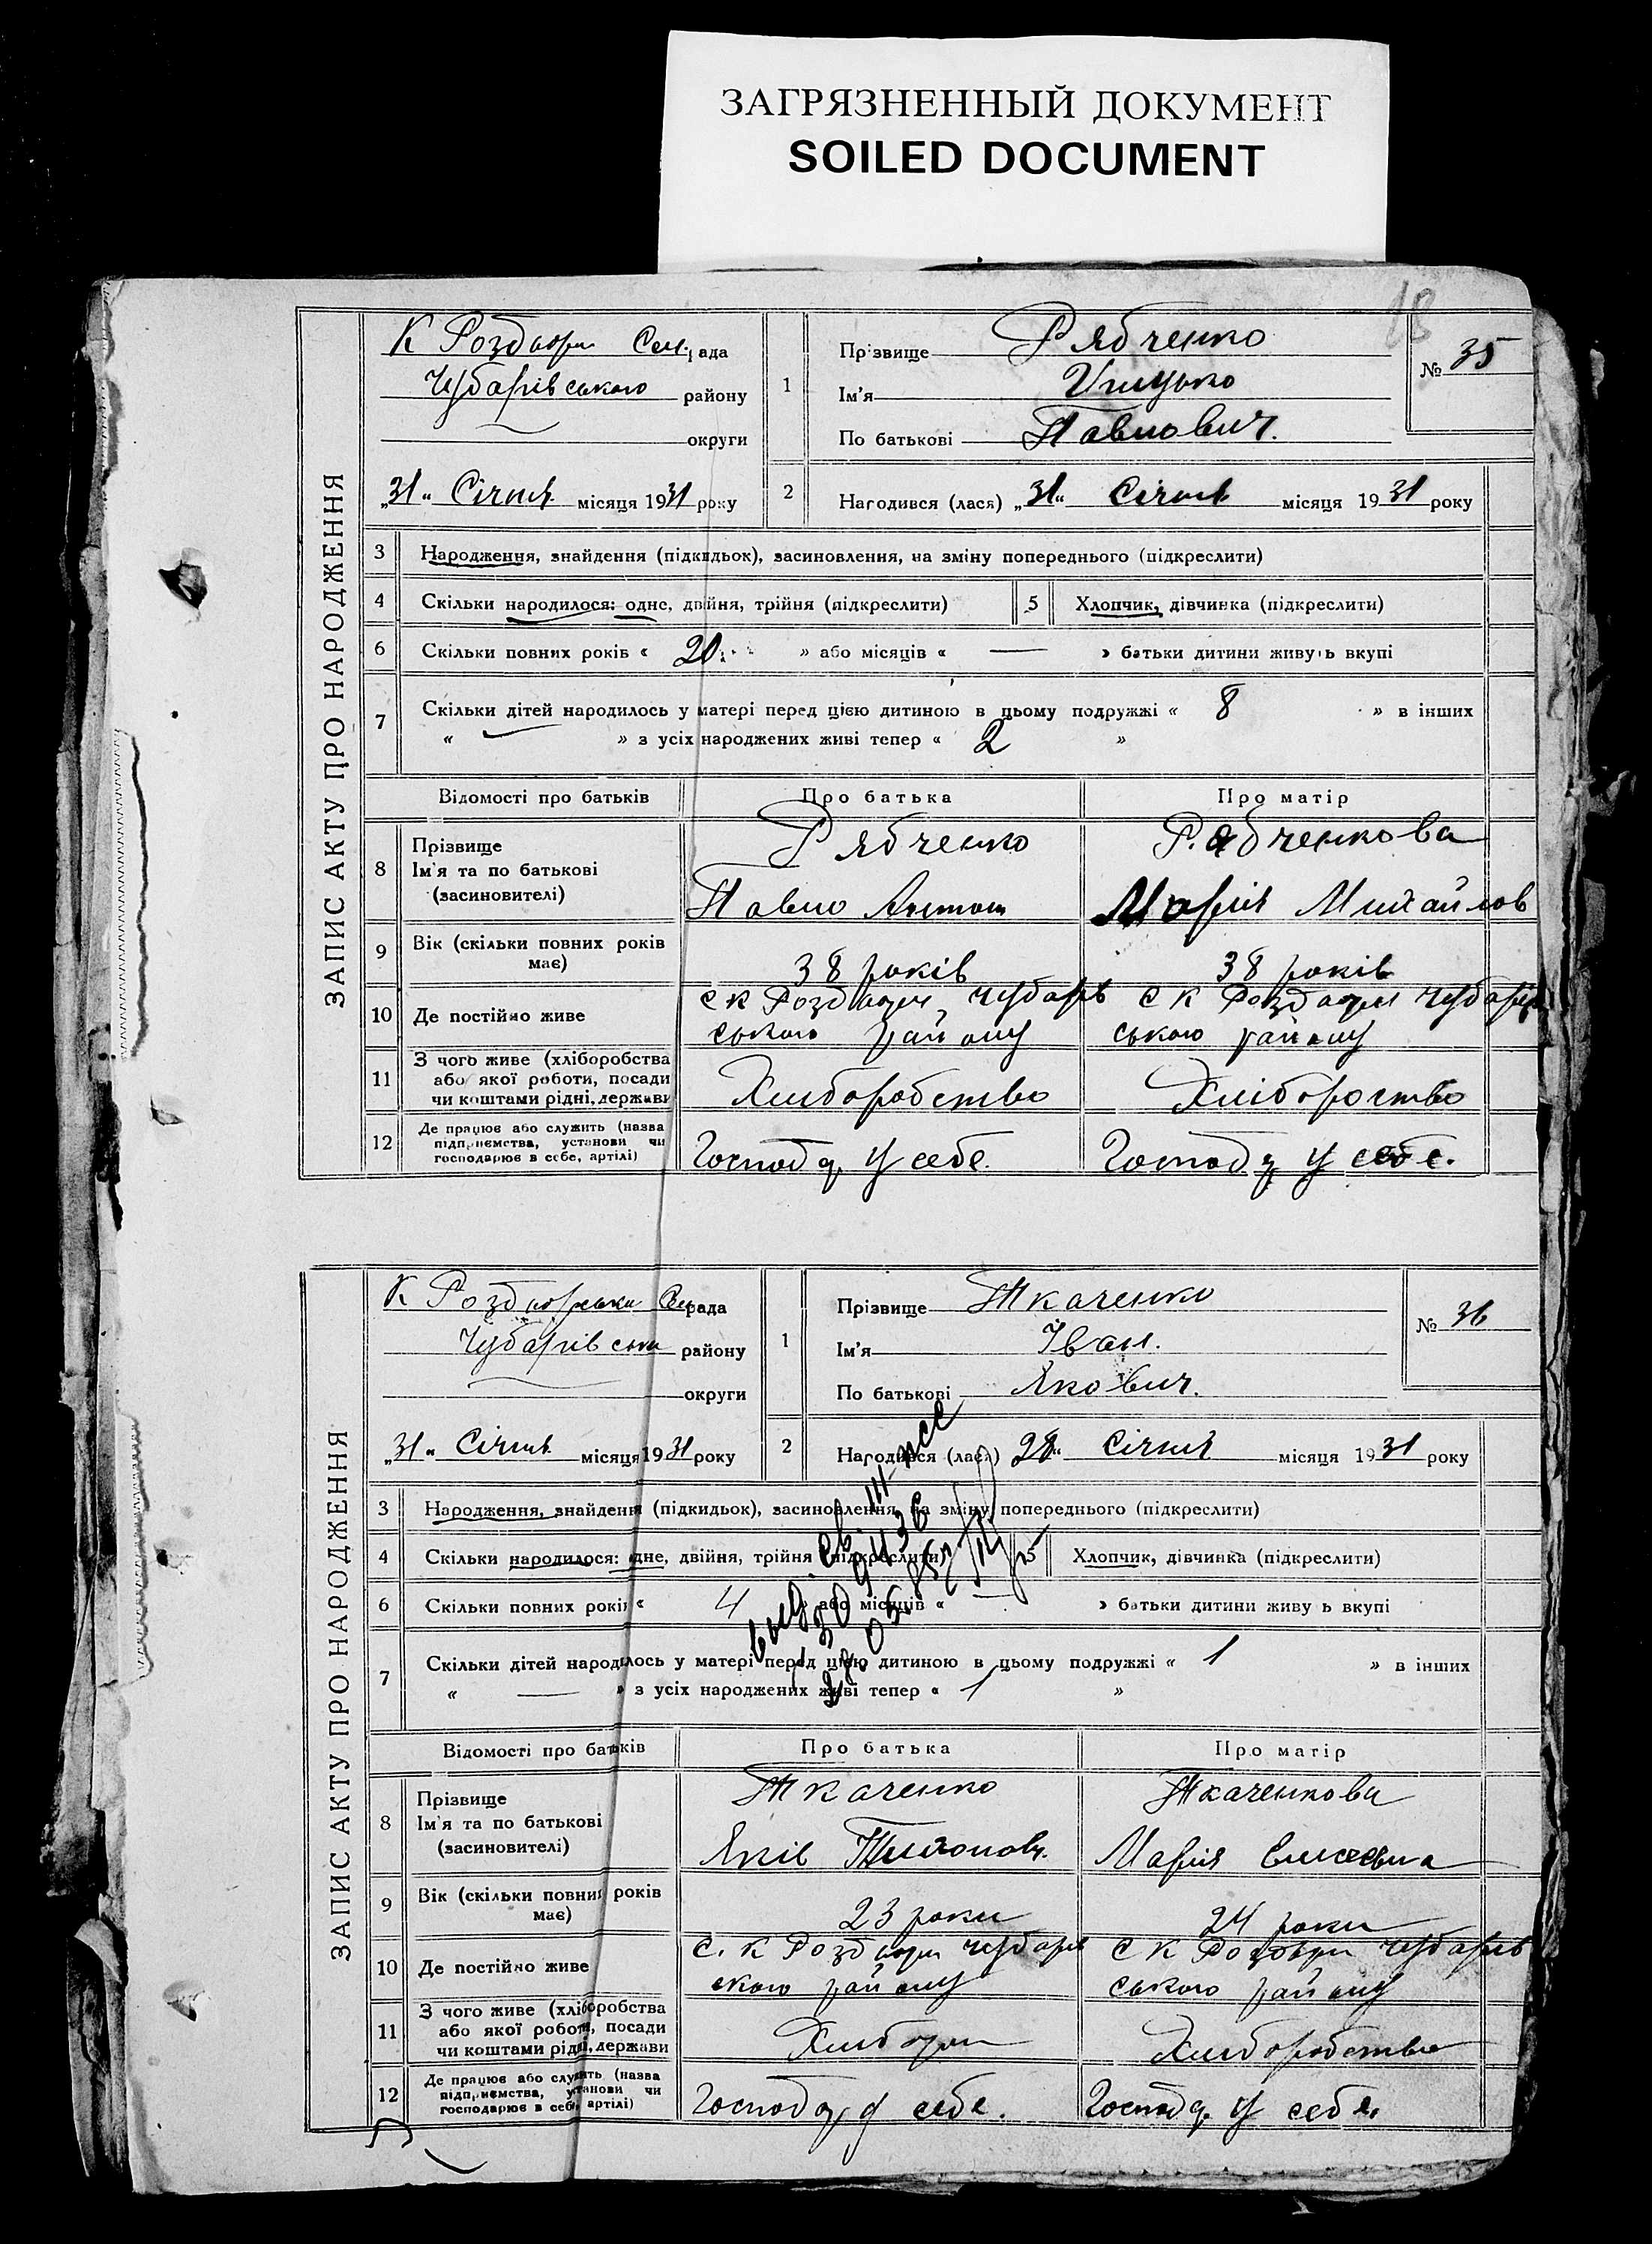 ЗАГРЯЗНЕННЫЙ ДОКУМЕНТ
SOILED DOCUMENT
18
ЗАПИС АКТУ ПРО НАРОДЖЕННЯ
К Роздори Сел. рада
Чубарівського району
округи
„31“ Січня місяця 1931 року
1
Прізвище Рябченко
Ім'я
По батькові Павлович.
№ 35
2
Народився (лася) „31“ Січня місяця 1931 року
3 Народження, знайдення (підкидьок), засиновлення, на зміну попереднього (підкреслити)
4 Скільки народилося: одне, двійня, трійня (підкреслити) 5 Хлопчик, дівчинка (підкреслити)
6 Скільки повних років « 20 » або місяців « — » батьки дитини живуть вкупі
7 Скільки дітей народилось у матері перед цією дитиною в цьому подружжі « 8 » в інших
« — » з усіх народжених живі тепер « 2 »
Відомості про батьків Про батька Про матір
8 Прізвище Ім'я та по батькові (засновителі)
Рябченко Рябченкова
Павло Антон Марія Михайлов
9 Вік (скільки повних років має) 38 років 38 років
10 Де постійно живе
с К Роздори Чубарів с К Роздори Чубарів
ського району ського району
11 З чого живе (хліборобства або якої роботи, посади чи коштами рідні, держави
Хліборобство Хлібороство
12 Де працює або служить (назва підприємства, установи чи господарює в себе, артілі)
Господ. у себе. Господ. у себе.
ЗАПИС АКТУ ПРО НАРОДЖЕННЯ
К Роздорська Сел рада
Чубарівськ району
округи
„31“ Січня місяця 1931 року
1
Прізвище Ткаченко
Ім'я Іван.
По батькові Якович.
№ 36
2
Народився (лася) 28“ Січня місяця 1931 року
3 Народження, знайдення (підкидьок), засиновлення, на зміну попереднього (підкреслити)
4 Скільки народилося: одне, двійня, трійня (підкреслити) 5 Хлопчик, дівчинка (підкреслити)
6 Скільки повних років « 4 » або місяців « — » батьки дитини живуть вкупі
7 Скільки дітей народилось у матері перед цією дитиною в цьому подружжі « 1 » в інших
« — » з усіх народжених живі тепер « 1 »
Відомості про батьків Про батька Про матір
8 Прізвище Ім'я та по батькові (засиновителі)
Ткаченко Ткаченкова
Яків Тихонов. Марія
9 Вік (скільки повних років має) 23 роки 24 роки
10 Де постійно живе
с. К Роздори Чубарів с К Роздори Чубарів
ского району ського району
11 З чого живе (хліборобства або якої роботи, посади чи коштами рідні, держави
Хлібороб Хліборобство
12 Де працює або служить (назва підприємства, установи чи господарює в себе, артілі)
Господ. у себе. Господ. у себе.